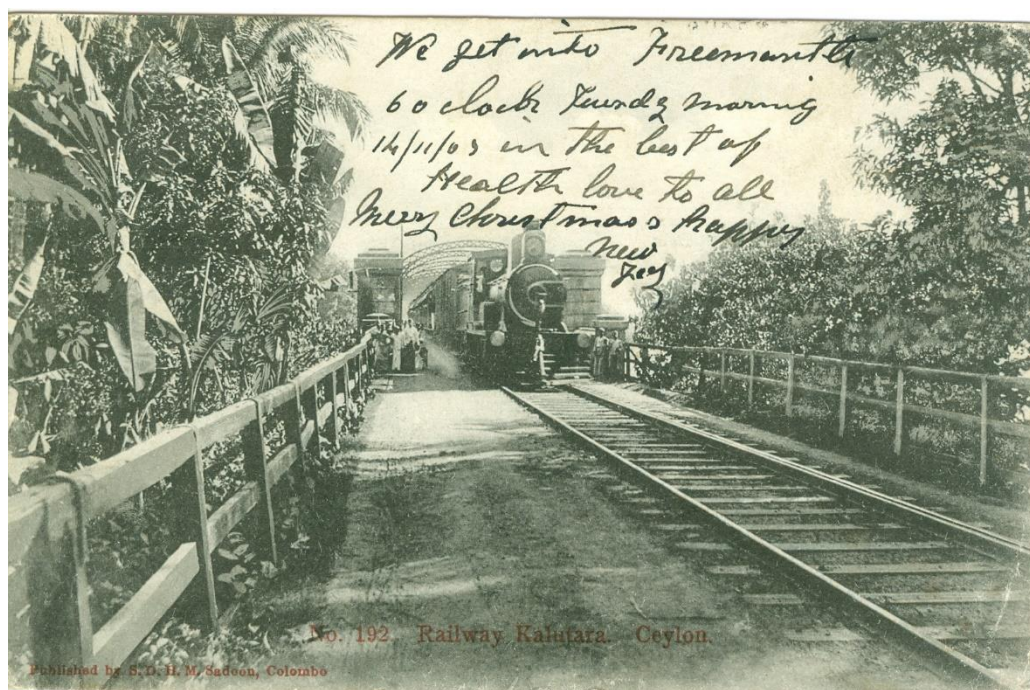 We get into Freemantle
6 o clock Tuesday morning
14/11/03 in the best of
Health love to all
Merry Christmas & happy
New
Year
No. 192. Railway Kalutara. Ceylon.
Published by S. D. H. M. Sadoon, Colombo